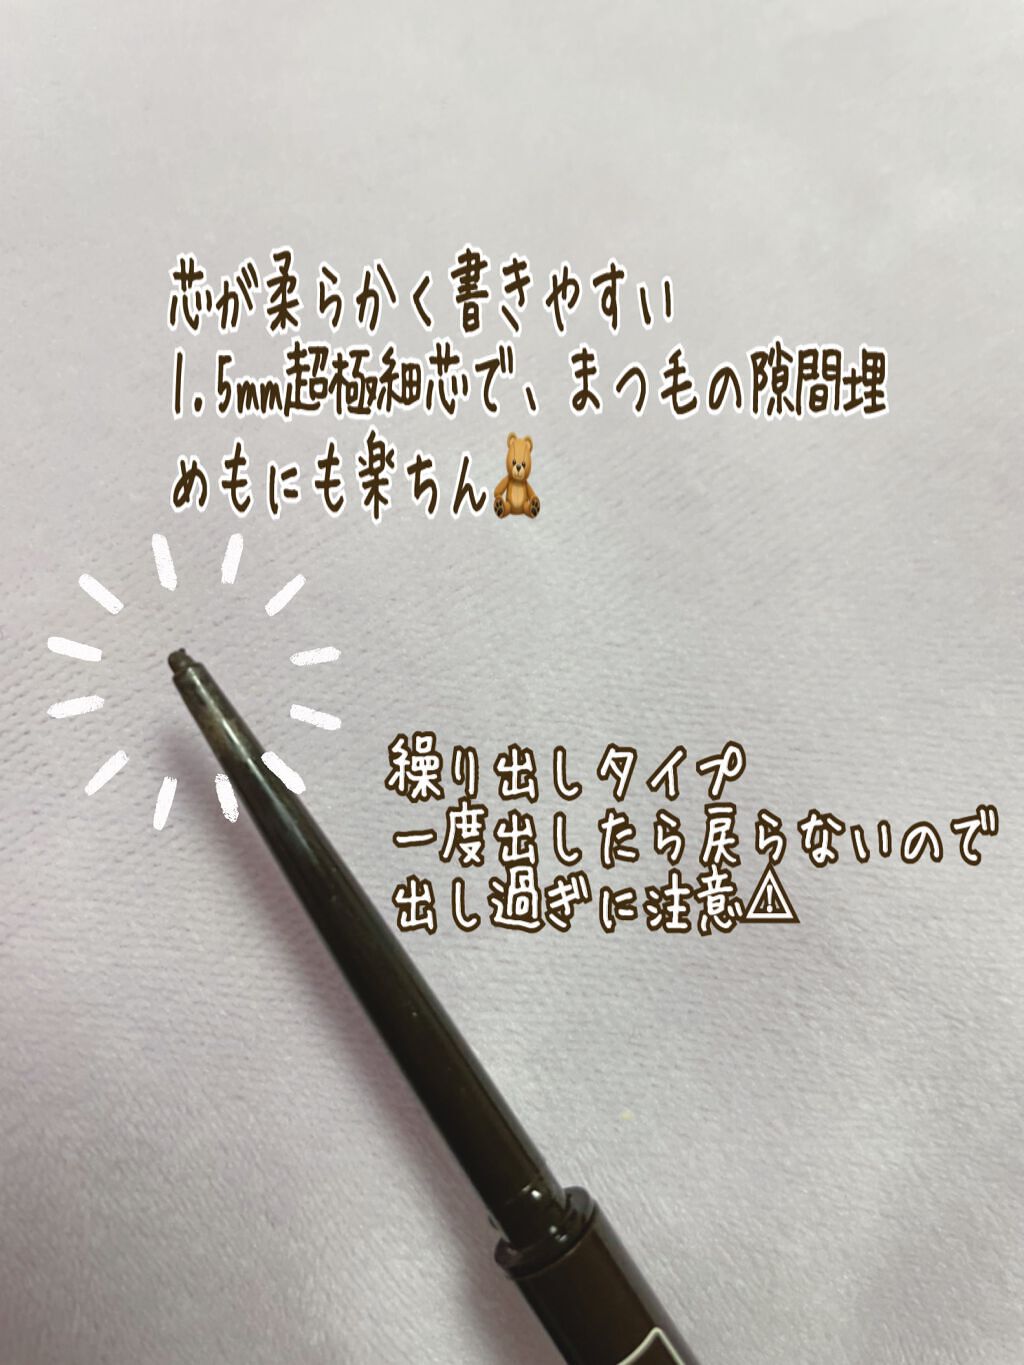 芯が柔らかく書きやすい
1.5mm超極細芯で、まつ毛の隙間埋
めもにも楽ちん🧸
繰り出しタイプ
一度出したら戻らないので
出し過ぎに注意⚠